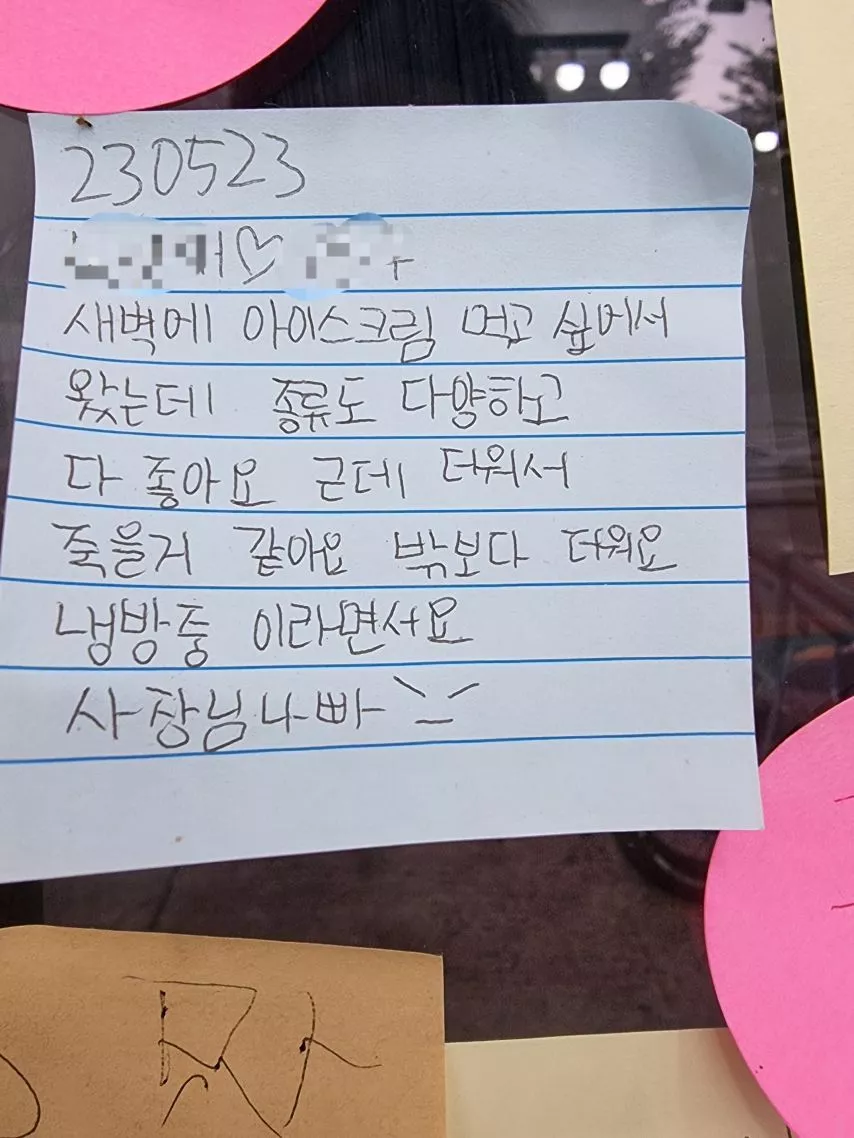 230523
♡
새벽에 아이스크림 먹고 싶에서
왔는데 종류도 다양하고
다 좋아요 근데 더워서
죽을거 같아요 밖보다 더워요
냉방중 이라면서요
사장님나빠